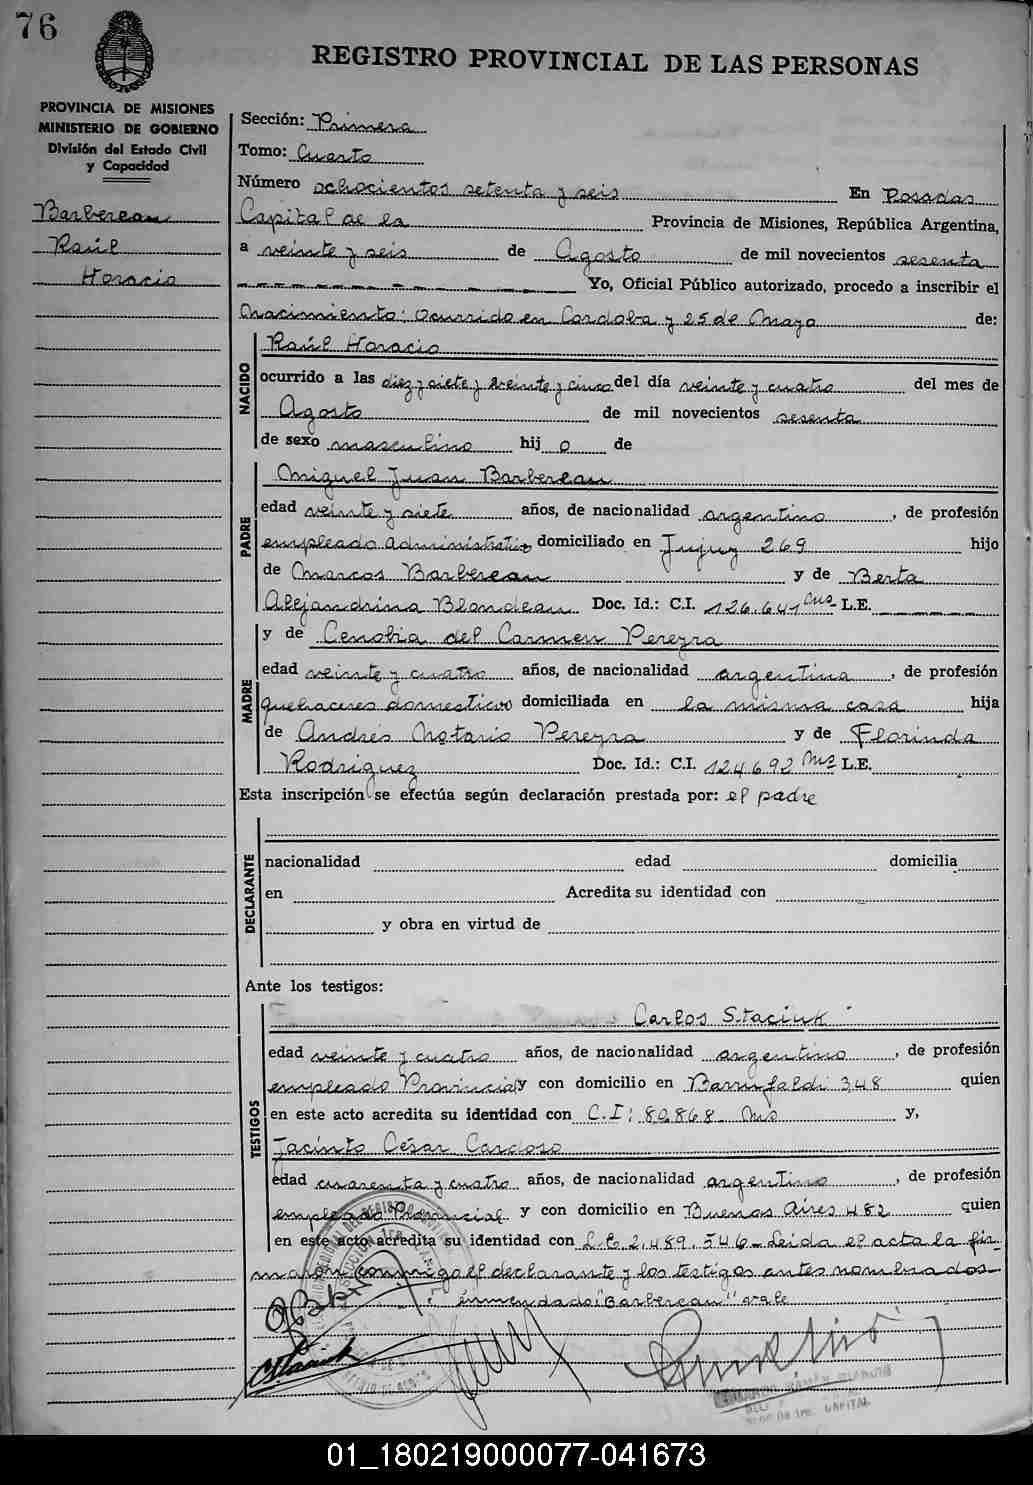 76
REGISTRO PROVINCIAL DE LAS PERSONAS
PROVINCIA DE MISIONES
MINISTERIO DE GOBIERNO
División del Estado Civil
y Capacidad
Barbereau
Raúl
Horacio
Sección: Primera
Tomo: Cuarto
Número ochocientos setenta y seis En Posadas
Capital de la Provincia de Misiones, República Argentina,
a veinte y seis de Agosto de mil novecientos sesenta
Yo, Oficial Público autorizado, procedo a inscribir el
nacimiento: ocurrido en Cordoba y 25 de Mayo de:
NACIDO
Raúl Horacio
ocurrido a las diez y siete y veinte y cinco del día veinte y cuatro del mes de
Agosto de mil novecientos sesenta
de sexo masculino hij o de
PADRE
Miguel Juan Barbereau
edad veinte y siete años, de nacionalidad argentino, de profesión
empleado administrativo domiciliado en Jujuy 269 hijo
de Marcos Barbereau y de Berta
Alejandrina Blondeau Doc. Id.: C.I. 126.641 Mns L.E.
MADRE
y de Cenobia del Carmen Pereyra
edad veinte y cuatro años, de nacionalidad argentina, de profesión
quehaceres domesticos domiciliada en la misma casa hija
de Andrés Notario Pereyra y de Florinda
Rodriguez Doc. Id.: C.I. 124692 Mns L.E.
Esta inscripción se efectúa según declaración prestada por: el padre
DECLARANTE
nacionalidad edad domicilia
en Acredita su identidad con
y obra en virtud de
Ante los testigos:
TESTIGOS
Carlos Staciuk
edad veinte y cuatro años, de nacionalidad argentino, de profesión
empleado Provincial y con domicilio en 348 quien
en este acto acredita su identidad con C.I: 80.868 Mns y,
Jacinto César Cardoso
edad cuarenta y cuatro años, de nacionalidad argentino, de profesión
empleado Provincial y con domicilio en Buenos Aires 482 quien
en este acto acredita su identidad con L.E. 2.489.546 - Leida el acta la fir-
maron conmigo el declarante y los testigos antes nombrados
enmendado: "Barbereau" vale
CAPITAL
01_180219000077-041673